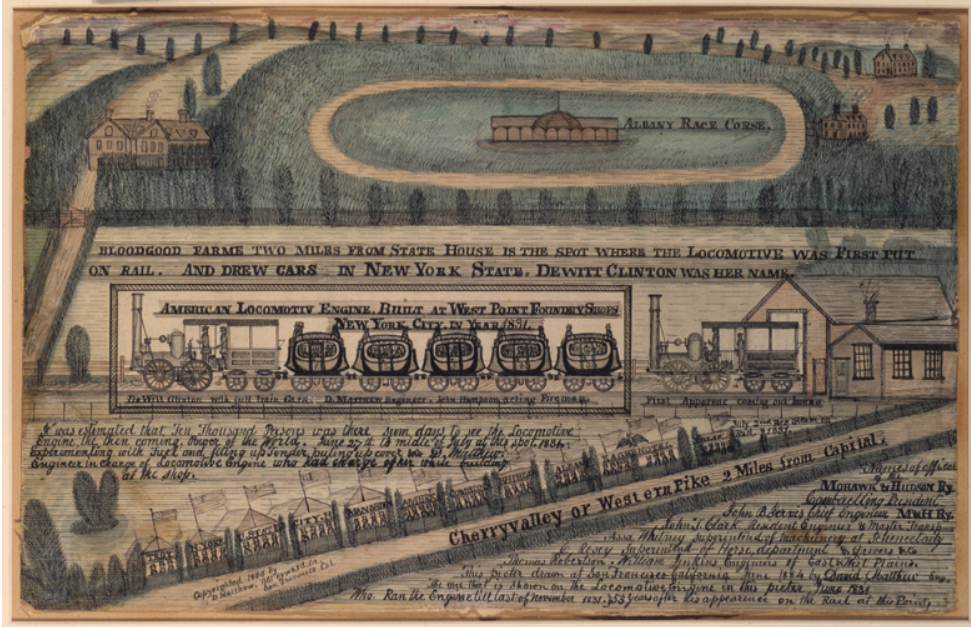 ALBANY RACE CORSE.
BLOODGOOD FARME TWO MILES FROM STATE HOUSE IS THE SPOT WHERE THE LOCOMOTIVE WAS FIRST PUT
ON RAIL. AND DREW CARS IN NEW YORK STATE. DEWITT CLINTON WAS HER NAME.
AMERICAN LOCOMOTIV ENGINE, BUILT AT WEST POINT FOUNDRY SHOPS
NEW YORK CITY, IN YEAR 1831.
De Witt Clinton with full Train Cars. D. Matthew Engineer. John Hampson acting Fireman.
First Apparenc coming out house
July 2nd 1831.
It was estimated that Ten Thousand Persons was there seem days to see the Locomotive
Engine the then coming Power of the World. June 27th to middle of July at this spot. 1831.
Experimenting with Fuel and filing up Tender, puting up cover &c. D. Matthew.
Engineer in charge of Locomotive Engine who had charge of her while building
at the shop.
TROY
STATE
CITY
ALBANY
EAGLE HOTEL
Cherryvalley or Western Pike 2 Miles from Capital.
Names of officer
MOHAWK & HUDSON Ry
Cambrelling President
John B Jervis Chief Engineer M&H Ry.
John T. Clark Resident Engineer & Master Transp
Assa Whitney Suprintend of machinery at Schenectady
Suprintend of Horse, department & Drivers &c
Thomas Robertson. William Jinkins Engineers of East & West Plains.
This picter drawn at San Francisco California June 1884 by David Matthew Eng.
The one that is shown on the Locomotive Engine in this picter June 1831
Who Ran the Engine till last of November 1831. 53 years after his appearence on the Rail at this Point.
Copyrighted 1884 by
D Matthew.
San Francisco Cal